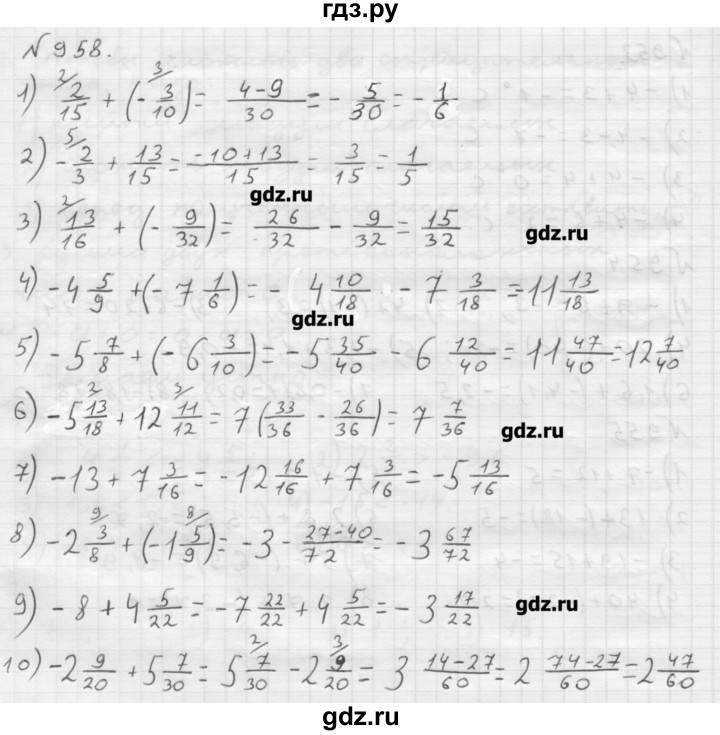 гдз.ру
№958.
1) 2/15 + (-3/10) = (4-9)/30 = -5/30 = -1/6
2) -2/3 + 13/15 = (-10+13)/15 = 3/15 = 1/5
gdz.ru
3) 13/16 + (-9/32) = 26/32 - 9/32 = 15/32
gdz.ru
4) -4 5/9 + (-7 1/6) = -4 10/18 - 7 3/18 = 11 13/18
gdz.ru
5) -5 7/8 + (-6 3/10) = -5 35/40 - 6 12/40 = 11 47/40 = 12 7/40
6) -5 13/18 + 12 11/12 = 7(33/36 - 26/36) = 7 7/36
gdz.ru
7) -13 + 7 3/16 = -12 16/16 + 7 3/16 = -5 13/16
8) -2 3/8 + (-1 5/9) = -3 - (27-40)/72 = -3 67/72
9) -8 + 4 5/22 = -7 22/22 + 4 5/22 = -3 17/22
gdz.ru
10) -2 9/20 + 5 7/30 = 5 7/30 - 2 9/20 = 3 (14-27)/60 = 2 (74-27)/60 = 2 47/60
gdz.ru